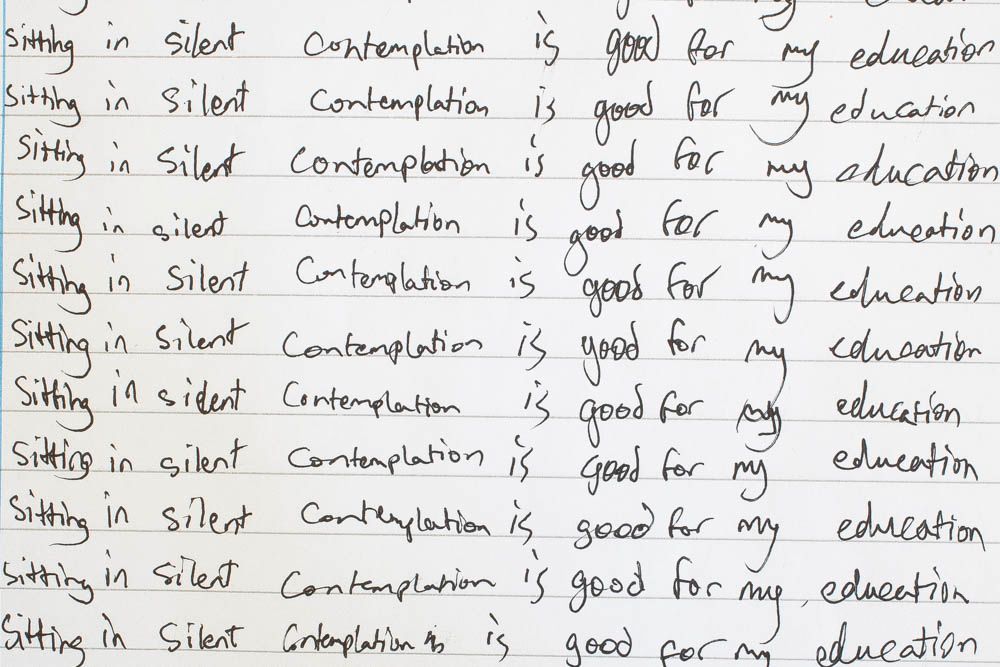 Sitting in silent Contemplation is good for my education
Sitting in silent Contemplation is good for my education
Sitting in silent Contemplation is good for my education
Sitting in silent Contemplation is good for my education
Sitting in silent Contemplation is good for my education
Sitting in silent Contemplation is good for my education
Sitting in sident Contemplation is good for my education
Sitting in silent Contemplation is good for my education
Sitting in silent Contemplation is good for my education
Sitting in silent Contemplation is good for my education
Sitting in silent Contemplation is is good for my education